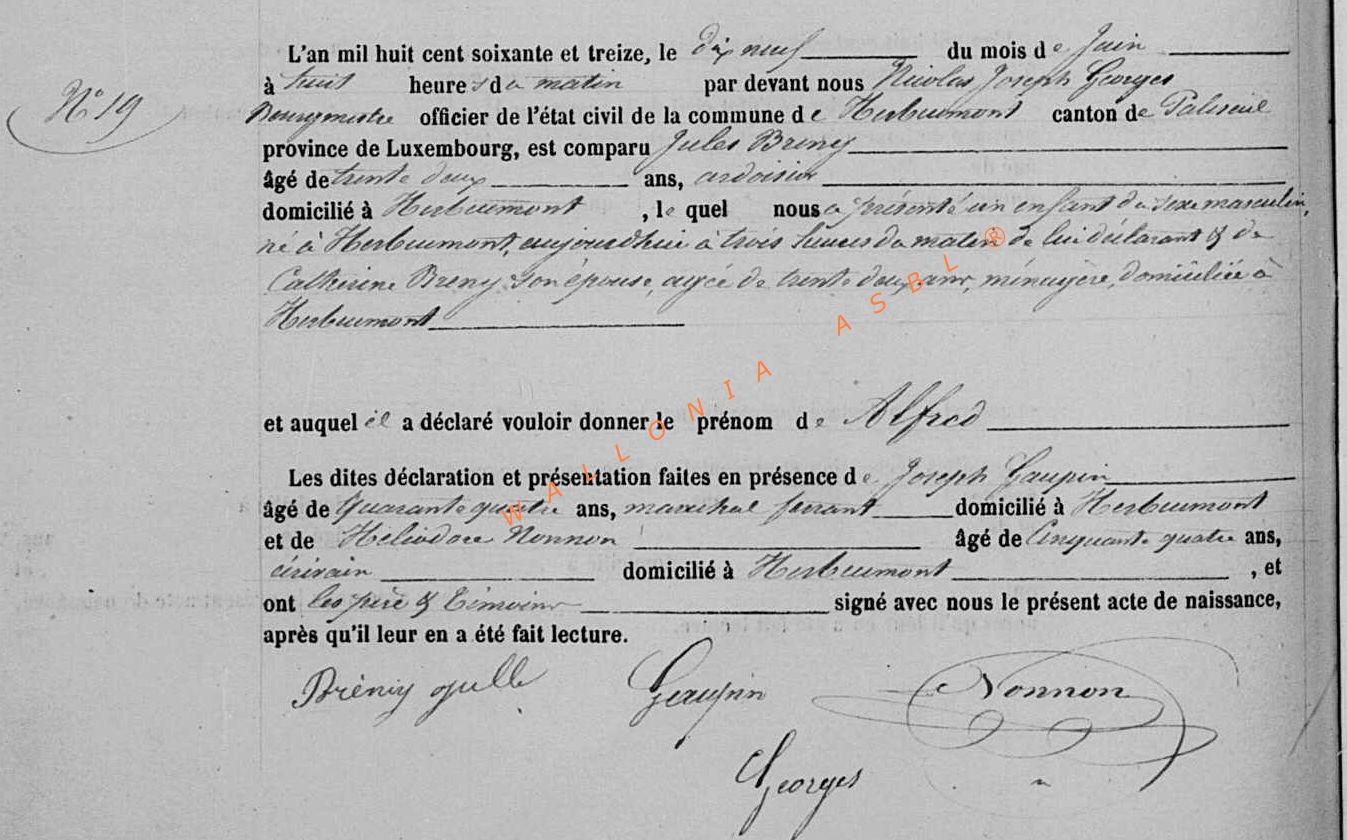 N° 19
L'an mil huit cent soixante et treize, le dix neuf du mois de Juin
à huit heures du matin par devant nous Nicolas Joseph Georges
Bourgmestre officier de l'état civil de la commune de Herbeumont canton de Paliseul
province de Luxembourg, est comparu Jules Breny
âgé de trente deux ans, ardoisier
domicilié à Herbeumont, le quel nous a présenté un enfant du sexe masculin,
né à Herbeumont, aujourdhui à trois heures du matin de lui déclarant & de
Catherine Breny son épouse, agée de trente deux ans, ménagère, domiciliée à
Herbeumont
et auquel il a déclaré vouloir donner le prénom de Alfred
Les dites déclaration et présentation faites en présence de Joseph Gaupin
âgé de quarante quatre ans, maréchal ferrant domicilié à Herbeumont
et de Héliodore Nonnon âgé de Cinquante quatre ans,
écrivain domicilié à Herbeumont, et
ont les père & témoins signé avec nous le présent acte de naissance,
après qu'il leur en a été fait lecture.
Brémy Gaupin Nonnon
Georges
WALLONIA ASBL ®